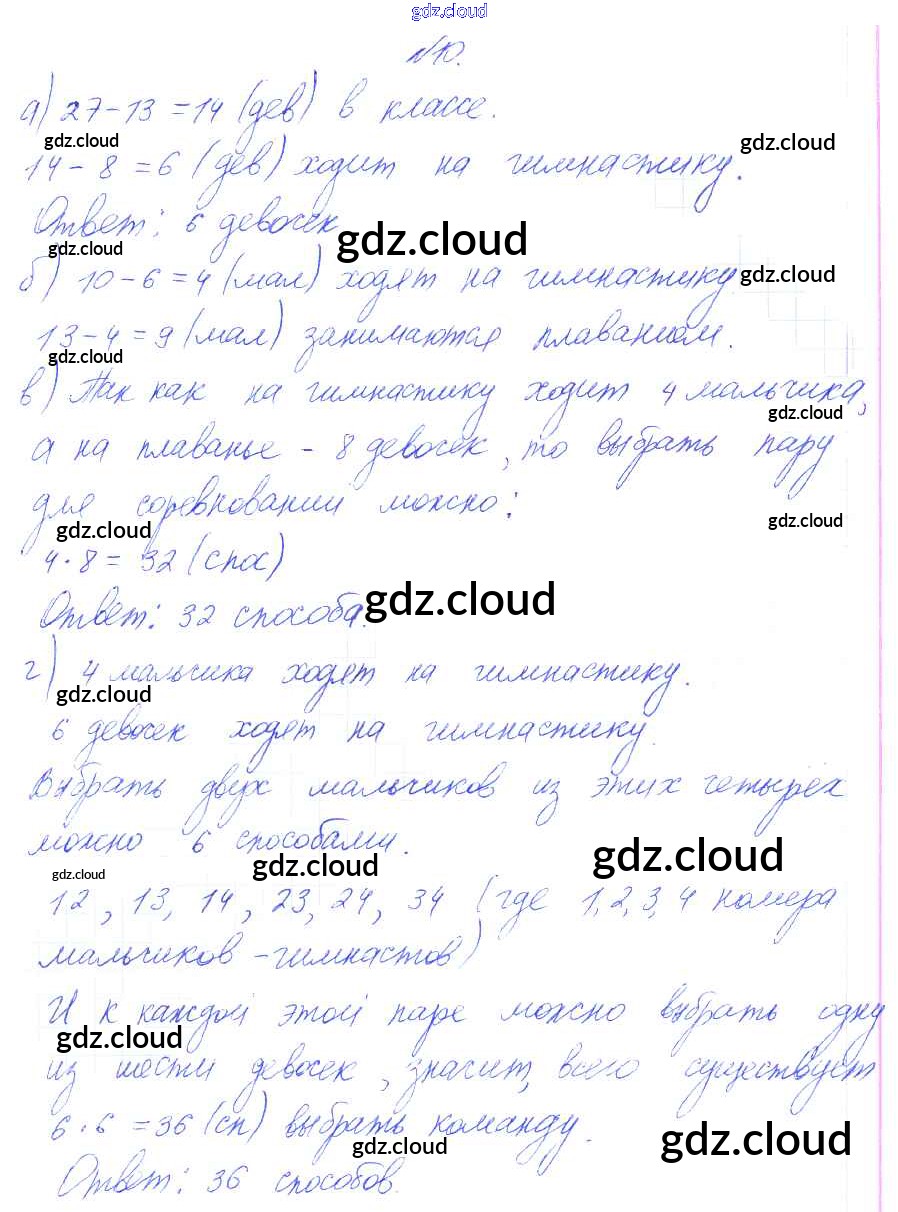 gdz.cloud
№10.
а) 27-13=14 (дев) в классе.
gdz.cloud gdz.cloud
14-8=6 (дев) ходит на гимнастику.
Ответ: 6 девочек
gdz.cloud gdz.cloud
б) 10-6=4 (мал) ходят на гимнастику
gdz.cloud
13-4=9 (мал) занимаются плаванием.
gdz.cloud
в) Так как на гимнастику ходит 4 мальчика,
gdz.cloud
а на плаванье - 8 девочек, то выбрать пару
для соревнований можно:
gdz.cloud gdz.cloud
4·8=32 (спос)
Ответ: 32 способа.
gdz.cloud
г) 4 мальчика ходят на гимнастику.
gdz.cloud
6 девочек ходят на гимнастику.
Выбрать двух мальчиков из этих четырёх
можно 6 способами.
gdz.cloud gdz.cloud gdz.cloud
12, 13, 14, 23, 24, 34 (где 1,2,3,4 номера
мальчиков-гимнастов)
И к каждой этой паре можно выбрать одну
gdz.cloud
из шести девочек, значит, всего существует
6·6=36 (сп) выбрать команду.
gdz.cloud gdz.cloud
Ответ: 36 способов.